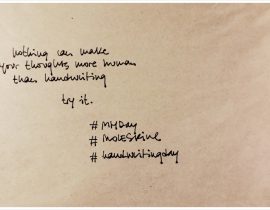 nothing can make
your thoughts more human
than handwriting
try it.
# MHDay
# moleskine
# handwritingday